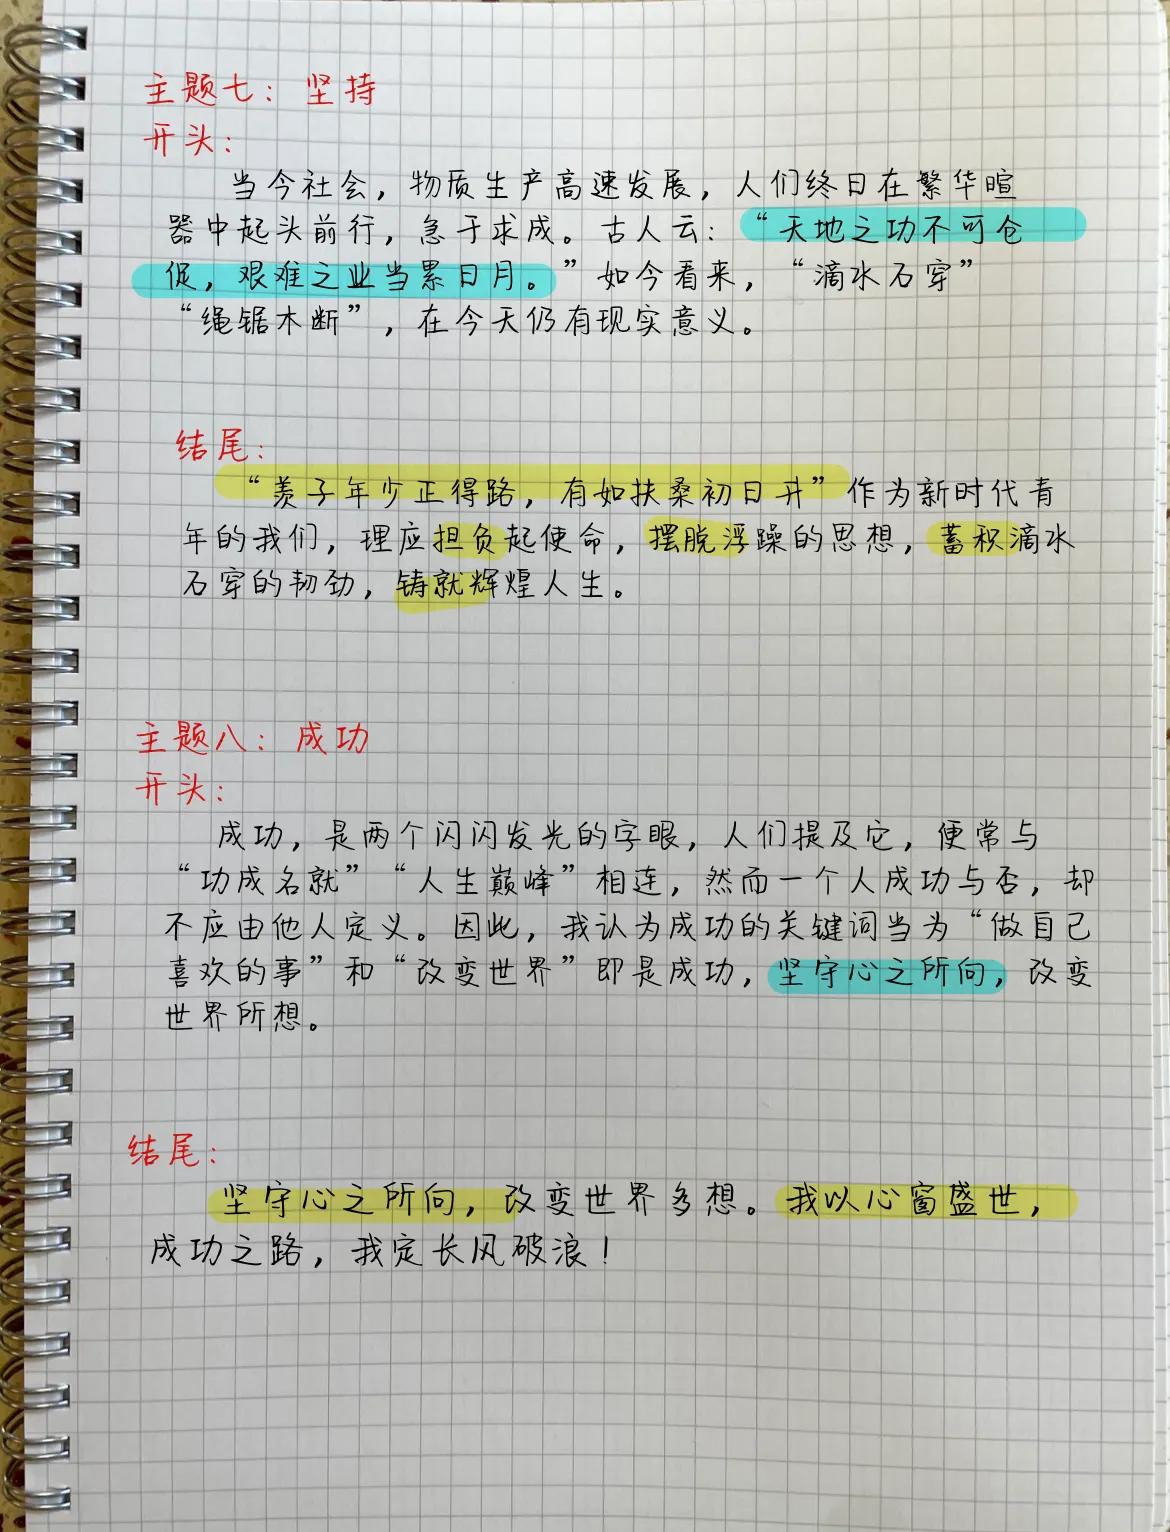 主题七：坚持
开头：
当今社会，物质生产高速发展，人们终日在繁华暄
器中起头前行，急于求成。古人云：“天地之功不可仓
促，艰难之业当累日月。”如今看来，“滴水石穿”
“绳锯木断”，在今天仍有现实意义。
结尾：
“羡子年少正得路，有如扶桑初日升”作为新时代青
年的我们，理应担负起使命，摆脱浮躁的思想，蓄积滴水
石穿的韧劲，铸就辉煌人生。
主题八：成功
开头：
成功，是两个闪闪发光的字眼，人们提及它，便常与
“功成名就”“人生巅峰”相连，然而一个人成功与否，却
不应由他人定义。因此，我认为成功的关键词当为“做自己
喜欢的事”和“改变世界”即是成功，坚守心之所向，改变
世界所想。
结尾：
坚守心之所向，改变世界多想。我以心窗盛世，
成功之路，我定长风破浪！